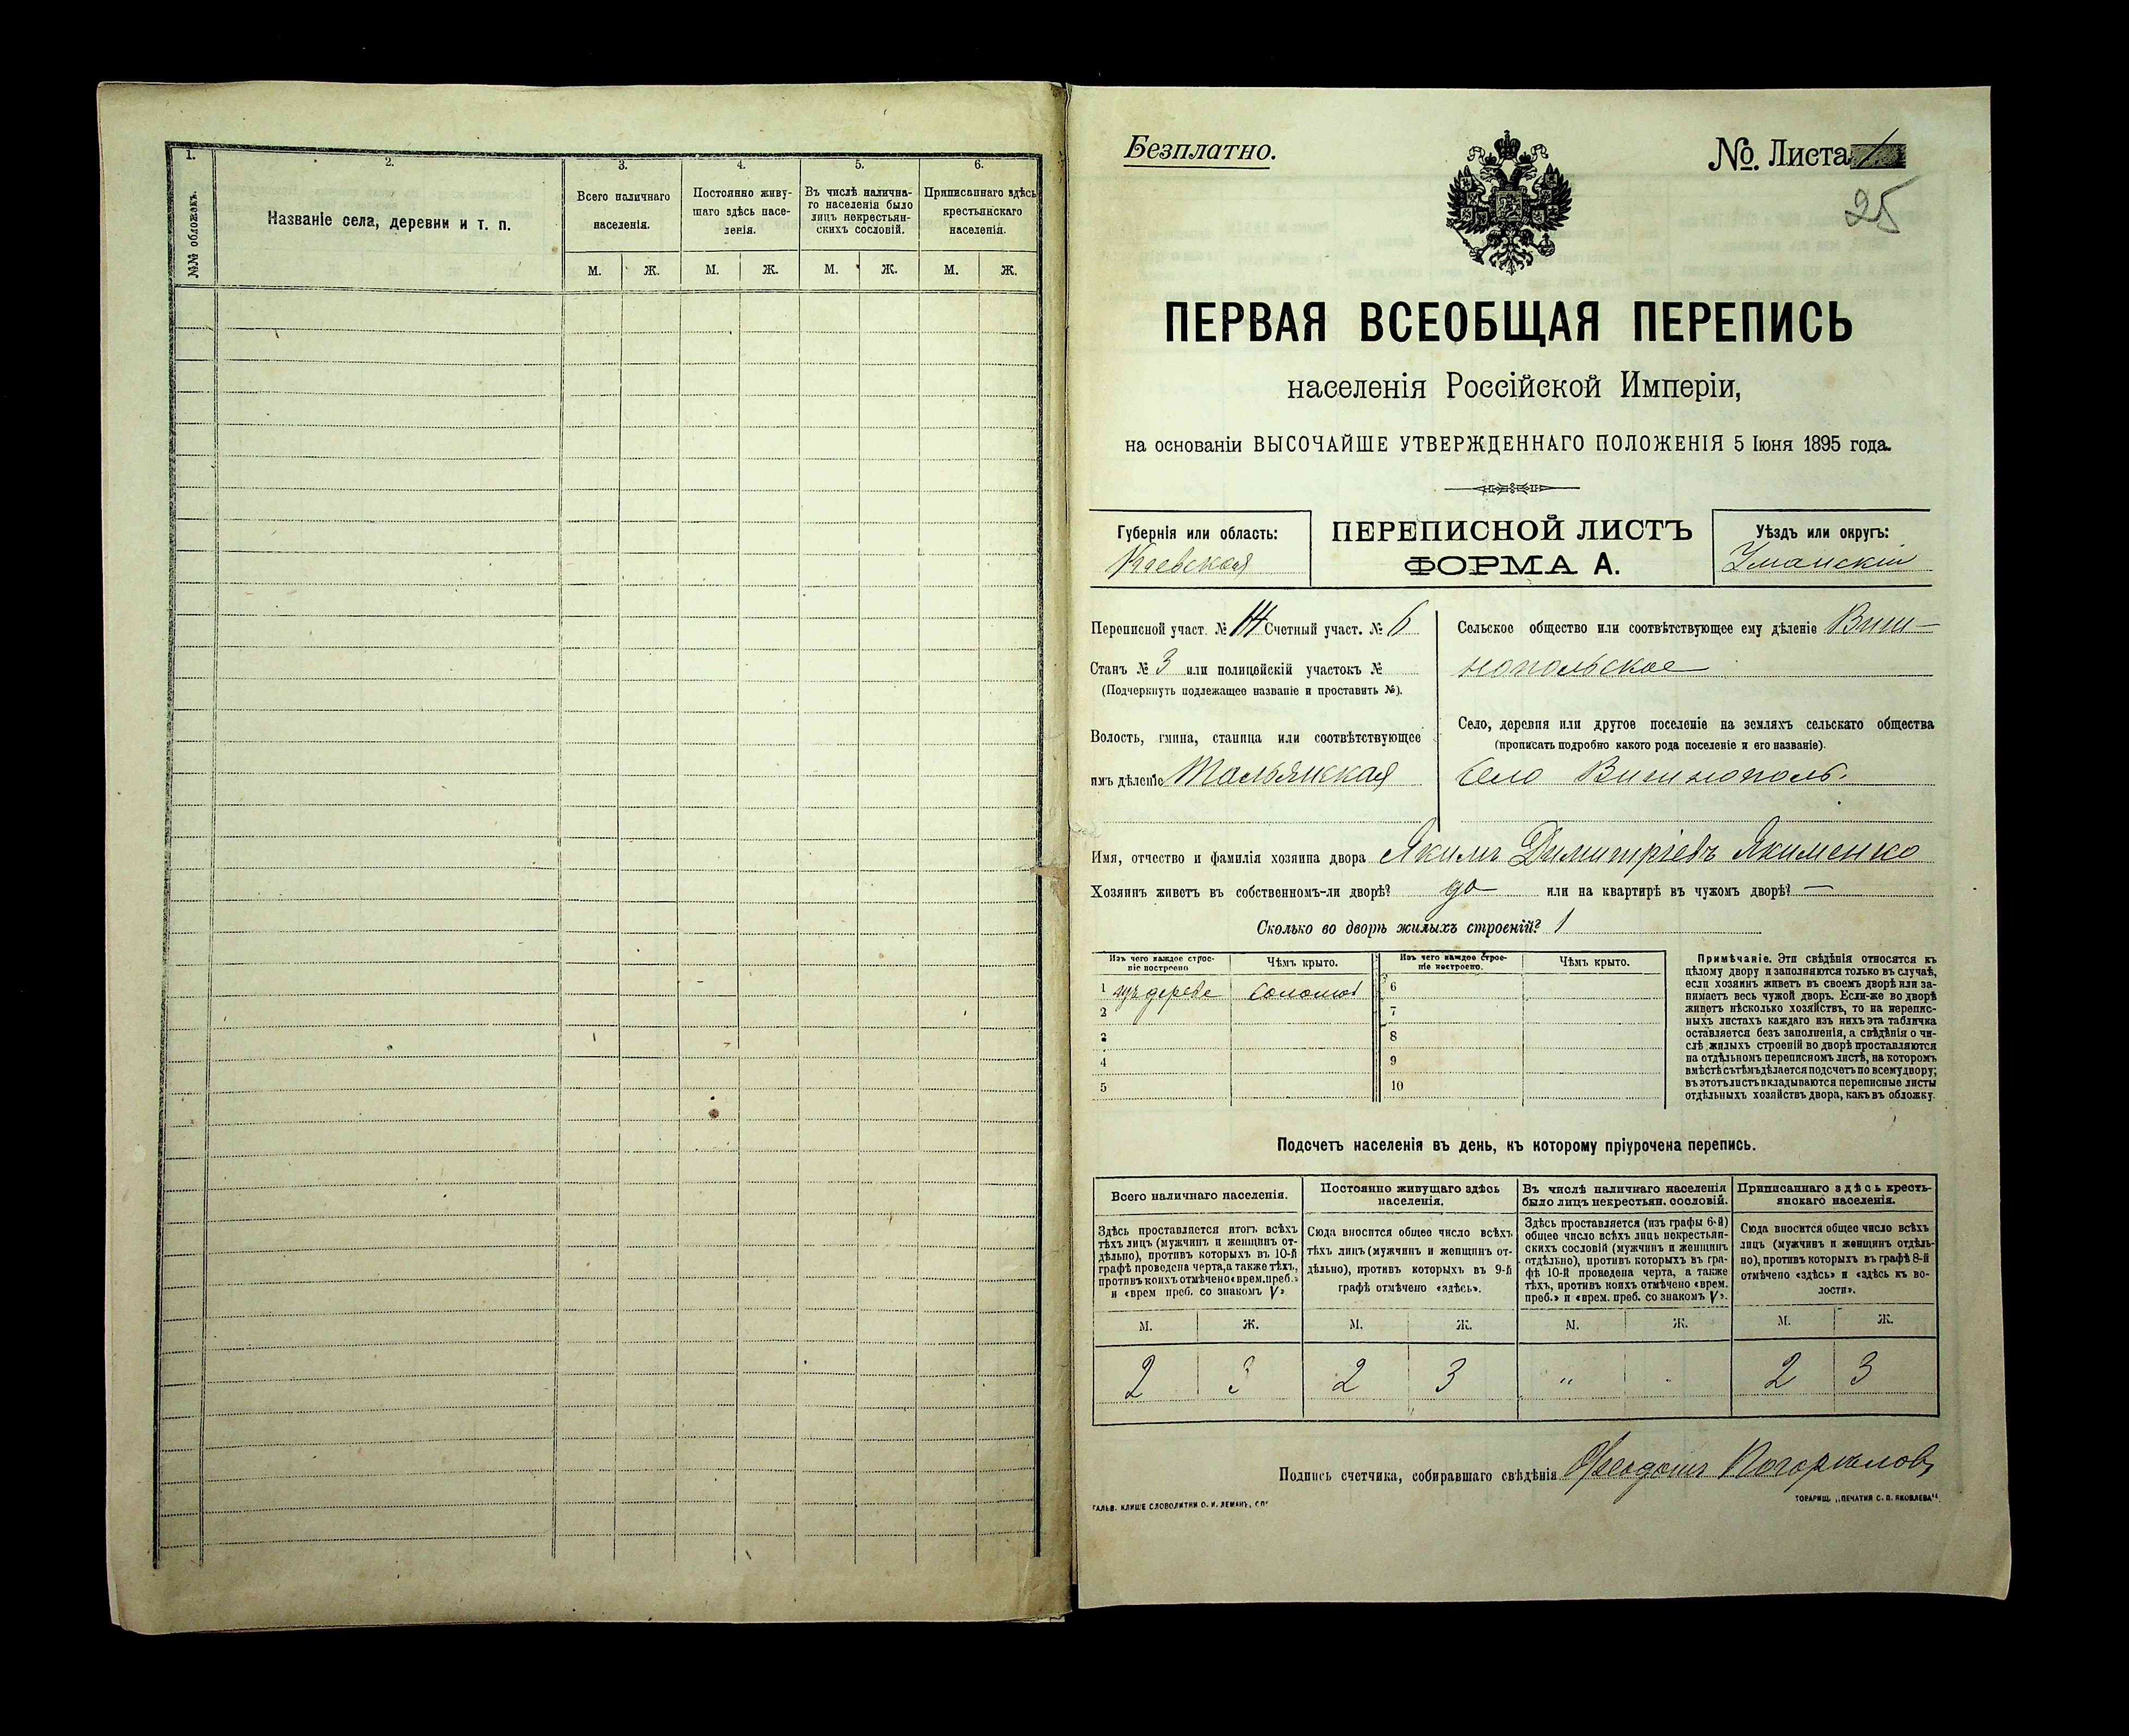 1.
2.
3.
4.
5.
6.
№№ обложекъ.
Названіе села, деревни и т. п.
Всего наличнаго
населенія.
Постоянно живу-
щаго здѣсь насе-
ленія.
Въ числѣ налична-
го населенія было
лицъ некрестьян-
скихъ сословій.
Приписаннаго здѣсь
крестьянскаго
населенія.
М. Ж. М. Ж. М. Ж. М. Ж.
Безплатно.
№. Листа 1
25
ПЕРВАЯ ВСЕОБЩАЯ ПЕРЕПИСЬ
населенія Россійской Имперіи,
на основаніи ВЫСОЧАЙШЕ УТВЕРЖДЕННАГО ПОЛОЖЕНІЯ 5 Іюня 1895 года.
Губернія или область:
Кіевская
ПЕРЕПИСНОЙ ЛИСТЪ
ФОРМА А.
Уѣздъ или округъ:
Уманскій
Переписной участ. № 14 Счетный участ. № 6
Станъ № 3 или полицейскій участокъ №
(Подчеркнуть подлежащее названіе и проставить №).
Волость, гмина, станица или соотвѣтствующее
имъ дѣленіе Тальянская
Сельское общество или соотвѣтствующее ему дѣленіе Виш-
нопольское
Село, деревня или другое поселеніе на земляхъ сельскаго общества
(прописать подробно какого рода поселеніе и его названіе).
село Вишнополь.
Имя, отчество и фамилія хозяина двора Якимъ Димитріевъ Якименко
Хозяинъ живетъ въ собственномъ-ли дворѣ? да или на квартирѣ въ чужомъ дворѣ? —
Сколько во дворѣ жилыхъ строеній? 1
Изъ чего каждое строе-
ніе построено
Чѣмъ крыто.
Изъ чего каждое строе-
ніе построено.
Чѣмъ крыто.
1 изъ дерева соломой 6
2 7
3 8
4 9
5 10
Примѣчаніе. Эти свѣдѣнія относятся къ
цѣлому двору и заполняются только въ случаѣ,
если хозяинъ живетъ въ своемъ дворѣ или за-
нимаетъ весь чужой дворъ. Если-же во дворѣ
живетъ нѣсколько хозяйствъ, то на перепис-
ныхъ листахъ каждаго изъ нихъ эта табличка
оставляется безъ заполненія, а свѣдѣнія о чи-
слѣ жилыхъ строеній во дворѣ проставляются
на отдѣльномъ переписномъ листѣ, на которомъ
вмѣстѣ съ тѣмъ дѣлается подсчетъ по всему двору;
въ этотъ листъ вкладываются переписные листы
отдѣльныхъ хозяйствъ двора, какъ въ обложку.
Подсчетъ населенія въ день, къ которому пріурочена перепись.
Всего наличнаго населенія.
Здѣсь проставляется итогъ всѣхъ
тѣхъ лицъ (мужчинъ и женщинъ от-
дѣльно), противъ которыхъ въ 10-й
графѣ проведена черта, а также тѣхъ,
противъ коихъ отмѣчено «врем. преб.»
и «врем преб. со знакомъ V».
Постоянно живущаго здѣсь
населенія.
Сюда вносится общее число всѣхъ
тѣхъ лицъ (мужчинъ и женщинъ от-
дѣльно), противъ которыхъ въ 9-й
графѣ отмѣчено «здѣсь».
Въ числѣ наличнаго населенія
было лицъ некрестьян. сословій.
Здѣсь проставляется (изъ графы 6-й)
общее число всѣхъ лицъ некрестьян-
скихъ сословій (мужчинъ и женщинъ
отдѣльно), противъ которыхъ въ гра-
фѣ 10-й проведена черта, а также
тѣхъ, противъ коихъ отмѣчено «врем.
преб.» и «врем. преб. со знакомъ V».
Приписаннаго здѣсь кресть-
янскаго населенія.
Сюда вносится общее число всѣхъ
лицъ (мужчинъ и женщинъ отдѣль-
но), противъ которыхъ въ графѣ 8-й
отмѣчено «здѣсь» и «здѣсь къ во-
лости».
М. Ж. М. Ж. М. Ж. М. Ж.
2 3 2 3 „ „ 2 3
Подпись счетчика, собиравшаго свѣдѣнія Феодосій Погорѣловъ
ГАЛЬВ. КЛИШЕ СЛОВОЛИТНИ О. И. ЛЕМАНЪ, СПб
ТОВАРИЩ. „ПЕЧАТНЯ С. П. ЯКОВЛЕВА“.